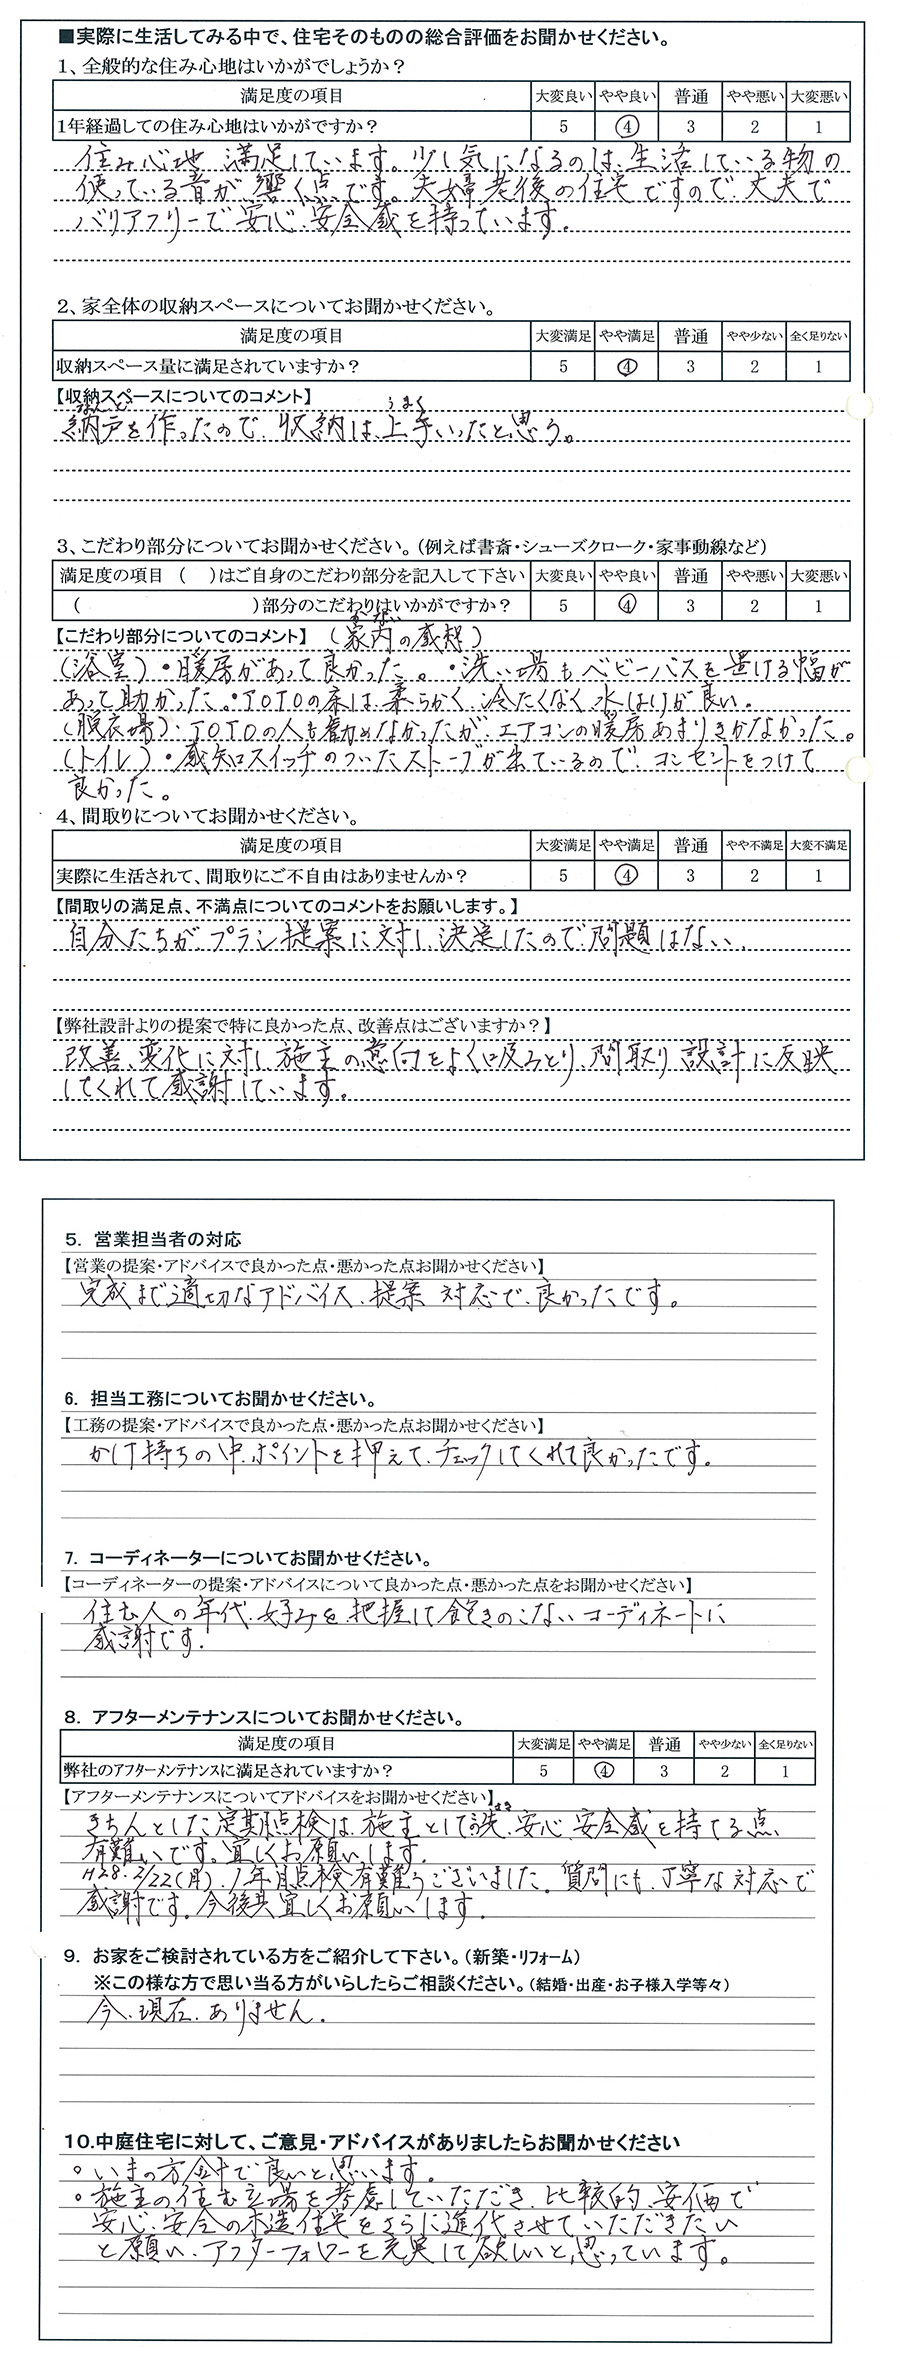 ■実際に生活してみる中で、住宅そのものの総合評価をお聞かせください。
1、全般的な住み心地はいかがでしょうか？
満足度の項目 大変良い やや良い 普通 やや悪い 大変悪い
1年経過しての住み心地はいかがですか？ 5 ④ 3 2 1
住み心地、満足しています。少し気になるのは、生活している物の
使っている音が響く点です。夫婦老後の住宅ですので、丈夫で
バリアフリーで安心、安全感を持っています。
2、家全体の収納スペースについてお聞かせください。
満足度の項目 大変満足 やや満足 普通 やや少ない 全く足りない
収納スペース量に満足されていますか？ 5 ④ 3 2 1
【収納スペースについてのコメント】
なんど うまく
納戸を作ったので、収納は、上手いったと思う。
3、こだわり部分についてお聞かせください。（例えば書斎・シューズクローク・家事動線など）
満足度の項目 （ ）はご自身のこだわり部分を記入して下さい 大変良い やや良い 普通 やや悪い 大変悪い
（ ）部分のこだわりはいかがですか？ 5 ④ 3 2 1
かない
【こだわり部分についてのコメント】 （家内の感想）
（浴室）・暖房があって良かった。・洗い場もベビーバスを置ける幅が
あって助かった。・TOTOの床は、柔らかく、冷たくなく、水はけが良い。
（脱衣場）・TOTOの人も勧めなかったが、エアコンの暖房あまりきかなかった。
（トイレ）・感知スイッチのついたストーブが出ているので、コンセントをつけて
良かった。
4、間取りについてお聞かせください。
満足度の項目 大変満足 やや満足 普通 やや不満足 大変不満足
実際に生活されて、間取りにご不自由はありませんか？ 5 ④ 3 2 1
【間取りの満足点、不満点についてのコメントをお願いします。】
自分たちが、プラン提案に対し、決定したので、問題はない、
【弊社設計よりの提案で特に良かった点、改善点はございますか？】
改善、変化に対し、施主の意向をよく吸みとり、間取り、設計に反映
してくれて感謝しています。
5. 営業担当者の対応
【営業の提案・アドバイスで良かった点・悪かった点お聞かせください】
完成まで適切なアドバイス、提案、対応で、良かったです。
6. 担当工務についてお聞かせください。
【工務の提案・アドバイスで良かった点・悪かった点お聞かせください】
かけ持ちの中、ポイントを押えて、チェックしてくれて良かったです。
7. コーディネーターについてお聞かせください。
【コーディネーターの提案・アドバイスについて良かった点・悪かった点をお聞かせください】
住む人の年代、好みを把握して飽きのこないコーディネートに
感謝です.
8. アフターメンテナンスについてお聞かせください。
満足度の項目 大変満足 やや満足 普通 やや少ない 全く足りない
弊社のアフターメンテナンスに満足されていますか？ 5 ④ 3 2 1
【アフターメンテナンスについてアドバイスをお聞かせください】
きちんとした定期点検は、施主として、安心、安全感を持てる点、
有難いです。宜しくお願いします.
H28.2/22(月).1年目点検有難うございました。質問にも、丁寧な対応で
感謝です。今後共宜しくお願いします.
9. お家をご検討されている方をご紹介して下さい。（新築・リフォーム）
※この様な方で思い当る方がいらしたらご相談ください。（結婚・出産・お子様入学等々）
今、現在、ありません.
10.中庭住宅に対して、ご意見・アドバイスがありましたらお聞かせください
○いまの方針で良いと思います。
○施主の住む立場を考慮していただき、比較的、安価で
安心、安全の木造住宅をさらに進化させていただきたい
と願い、アフターフォローを充実して欲しいと思っています。